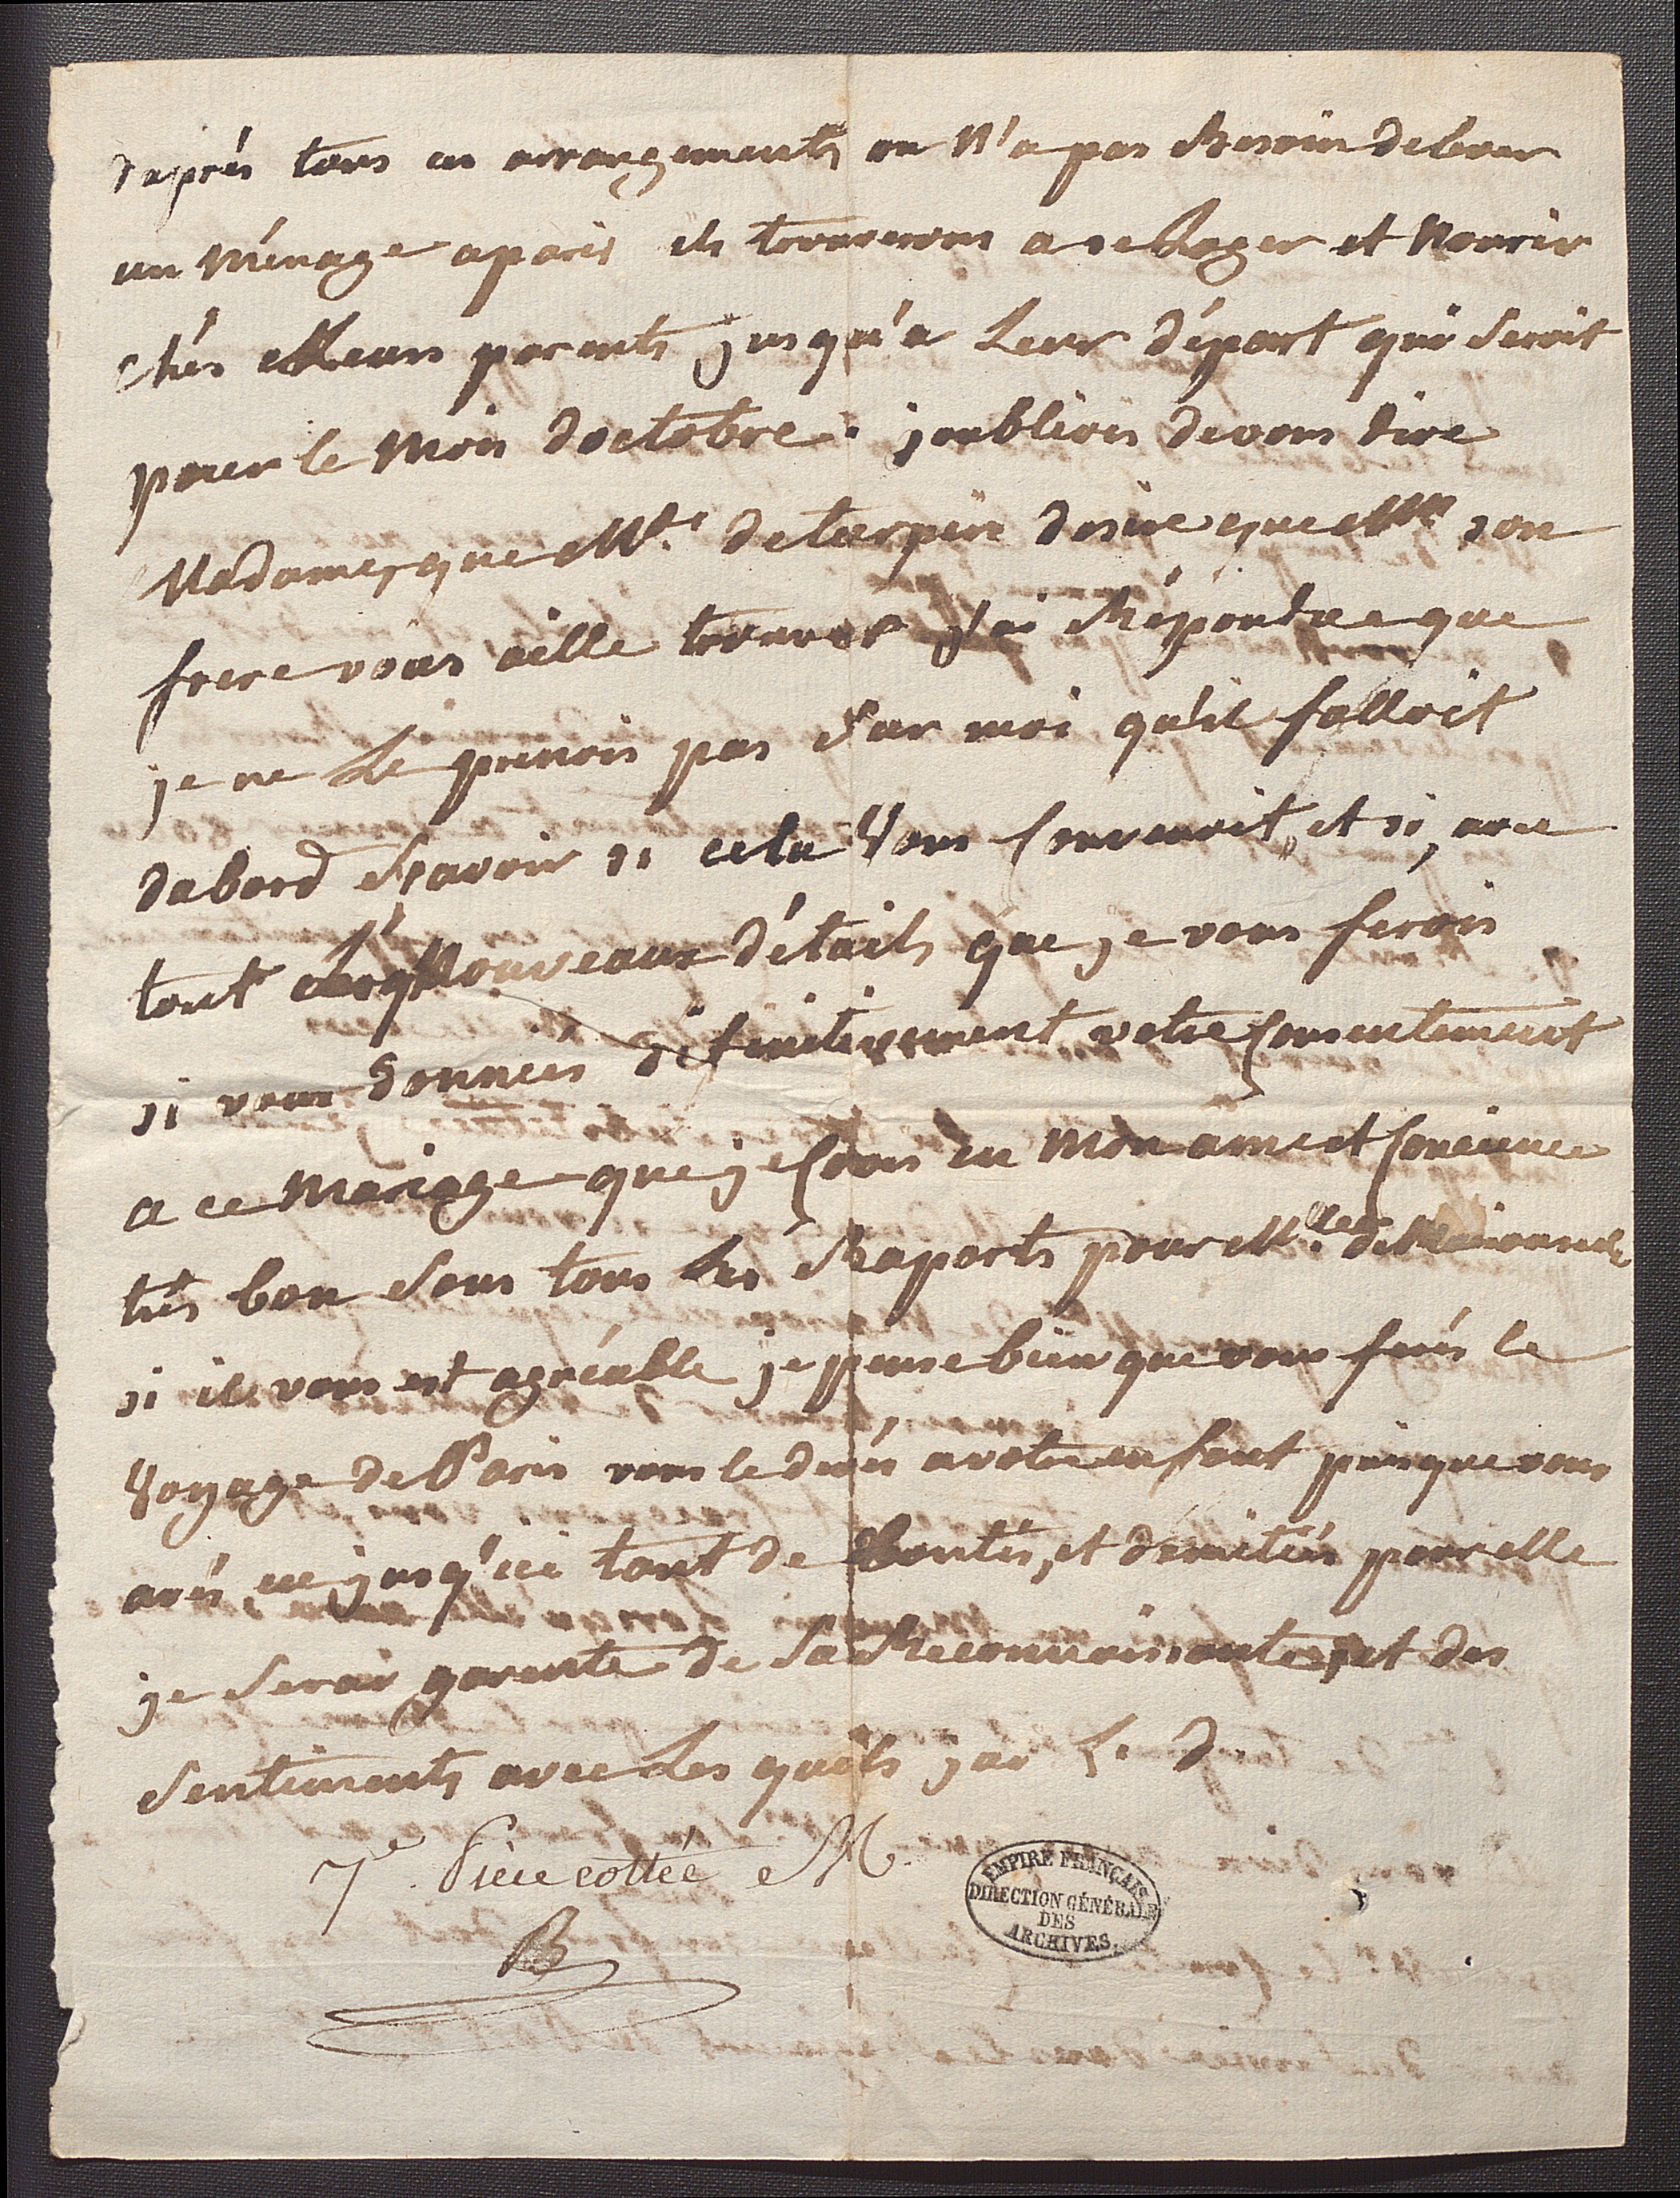 daprés tous ces arrangements on N'a pas Besoin delever
un Ménage aparis ils trouverons a se Loger et Nourir
Chés Leurs parents jusqu'a Leur départ qui Seroit
pour le Mois doctobre. joublivis devous dire
Madame, que Mde. deturpin desire que Mr. son
frere vous aille trouver j'ai Répondue que
je ne Le prenois pas Sur moi qu'il falloit
dabord Sçavoir si cela Vous Convenoit, et si, avec
tout Les Nouveaux détails que je vous ferois
si vous donniés définitivement votre Consentement
a ce Mariage que je Crois en Mon ame et Concience
trés bon Sous tous Les Raports pour Mlle. de
si il vous est agréable je pense bien que vous ferés le
Voyage de Paris vous le devés a votre enfant puisque vous
avés eu jusqu'ici tant de Bontés, et damitiés pour elle
je Serai garente de Sa Reconnoissante, et des
Sentiments avec Les quels jai L. d
7e. Piece cottée M.
B
EMPIRE FRANÇAIS
DIRECTION GÉNÉRALE
DES
ARCHIVES.